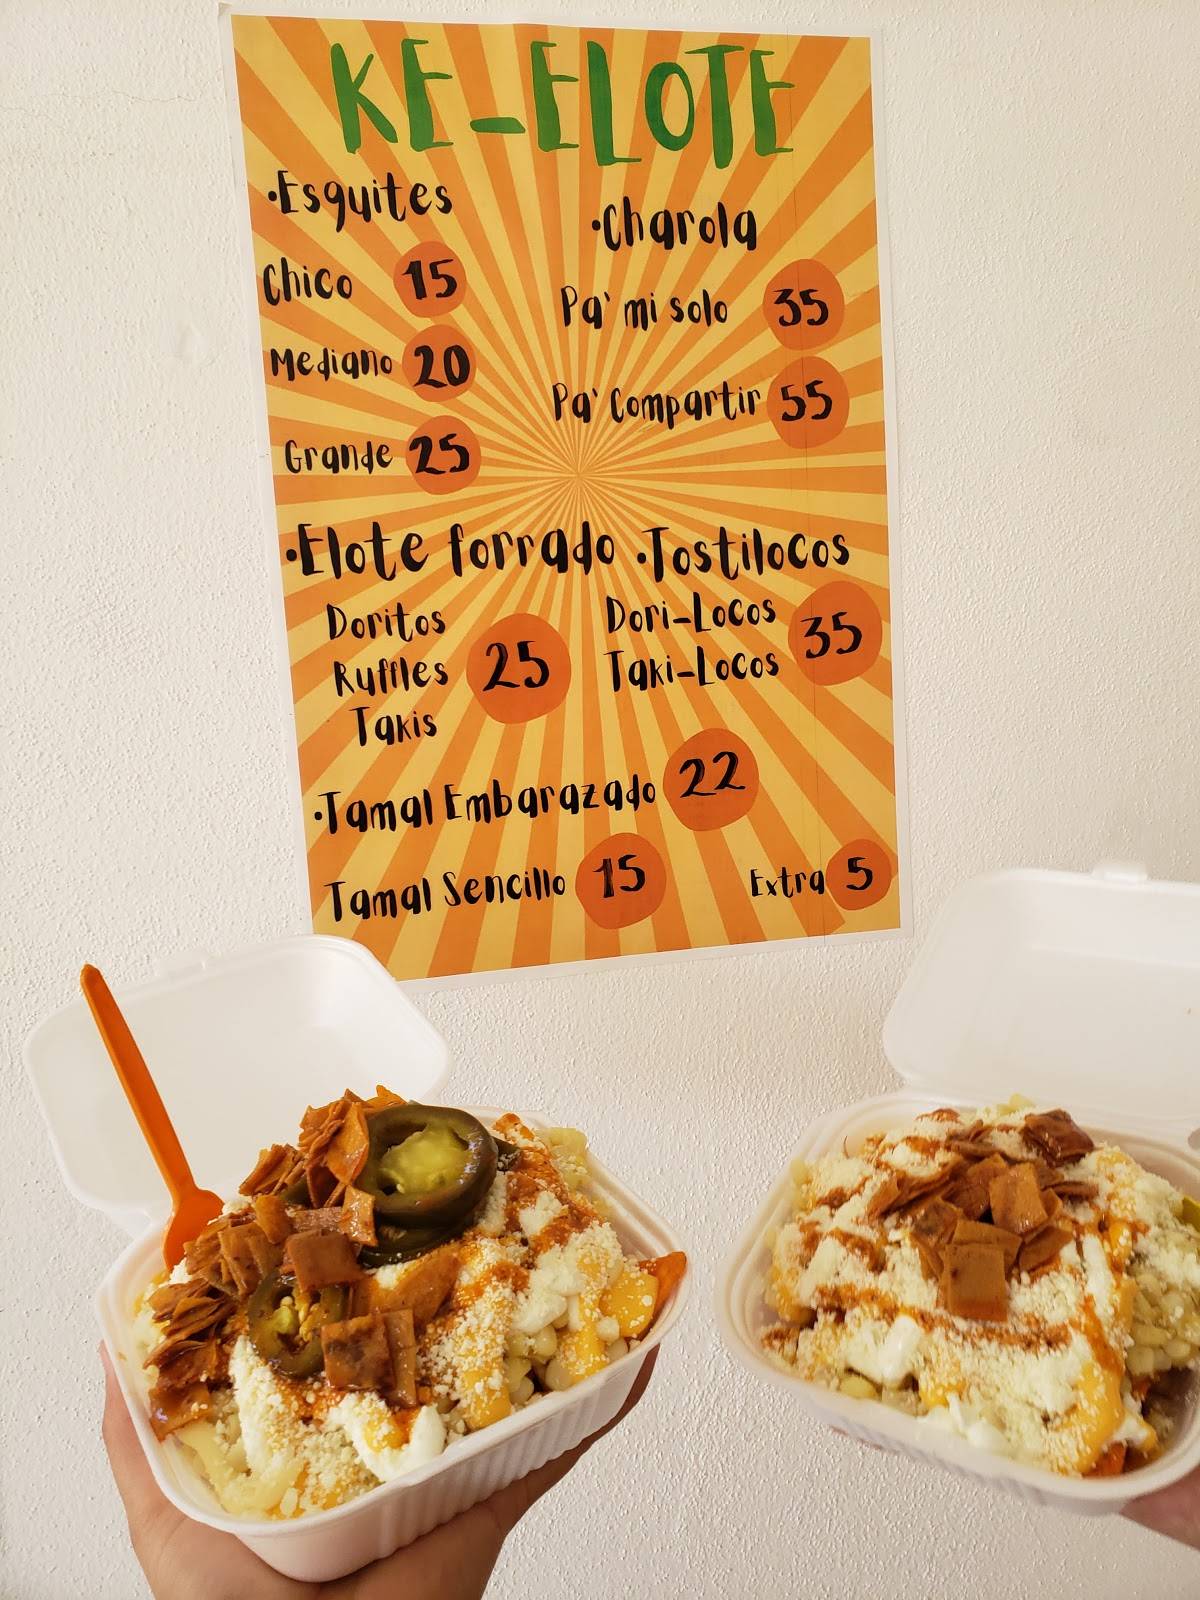 KE-ELOTE
·Esquites
Chico 15
Mediano 20
Grande 25
·Charola
Pa' mi solo 35
Pa' Compartir 55
·Elote forrado
Doritos
Ruffles 25
Takis
·Tostilocos
Dori-Locos
35
Taki-Locos
·Tamal Embarazado 22
Tamal Sencillo 15
Extra 5